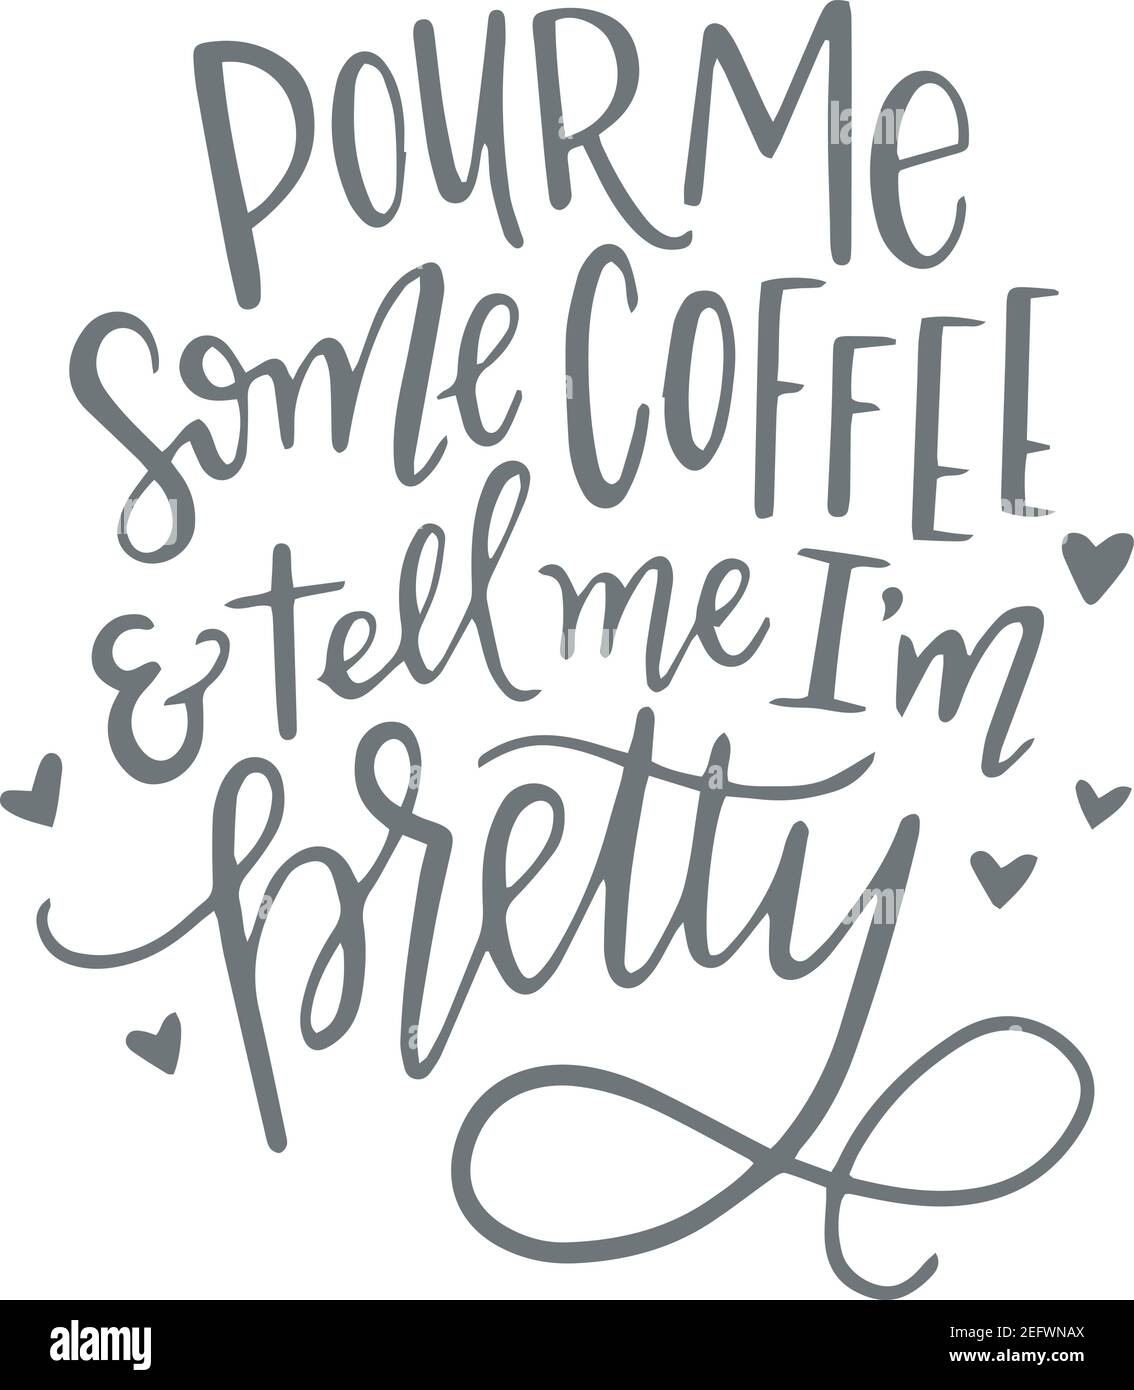 POUR Me
some COFFEE
& tell me I'm
pretty
alamy
Image ID: 2EFWNAX
www.alamy.com